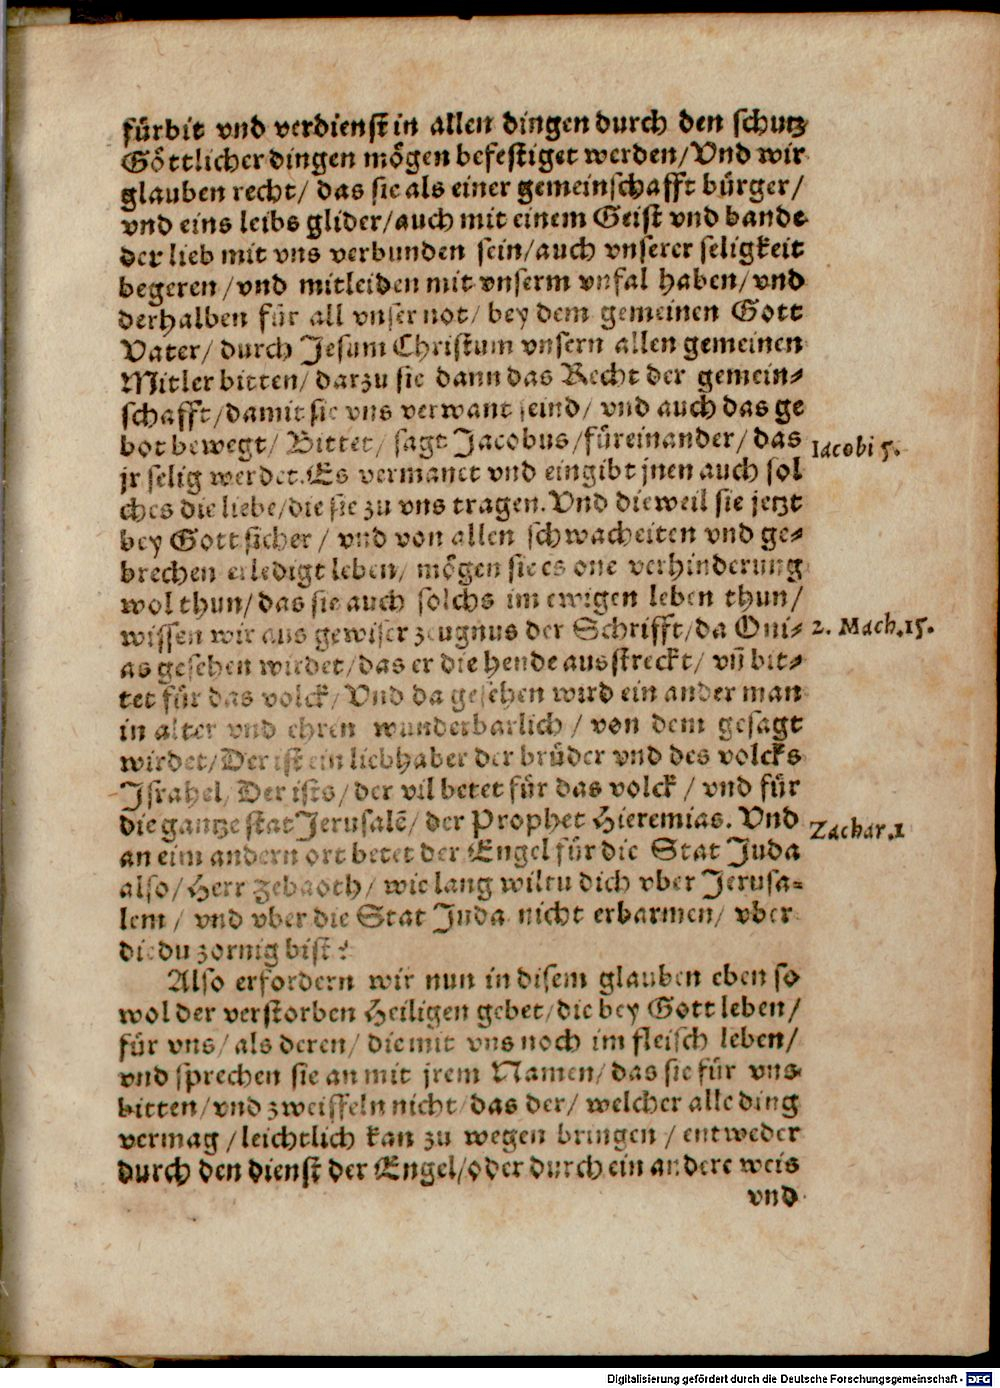 fürbit vnd verdienst in allen dingen durch den schutz
Göttlicher dingen mögen befestiget werden/ Vnd wir
glauben recht/ das sie als einer gemeinschafft bürger/
vnd eins leibs glider/ auch mit einem Geist vnd bande
der lieb mit vns verbunden sein/ auch vnserer seligkeit
begeren/ vnd mitleiden mit vnserm vnfal haben/ vnd
derhalben für all vnser not/ bey dem gemeinen Gott
Vater/ durch Jesum Christum vnsern allen gemeinen
Mitler bitten/ darzu sie dann das Recht der gemein⸗
schafft/ damit sie vns verwant seind/ vnd auch das ge
bot bewegt/ Bittet/ sagt Jacobus/ füreinander/ das
jr selig werdet. Es vermanet vnd eingibt jnen auch sol
ches die liebe/ die sie zu vns tragen. Vnd dieweil sie jetzt
bey Gott sicher/ vnd von allen schwacheiten vnd ge⸗
brechen erledigt leben/ mögen sie es one verhinderung
wol thun/ das sie auch solchs im ewigen leben thun/
wissen wir aus gewiser zeugnus der Schrifft/ da Oni⸗
as gesehen wirdet/ das er die hende ausstreckt/ vñ bit⸗
tet für das volck/ Vnd da gesehen wird ein ander man
in alter vnd ehren wunderbarlich/ von dem gesagt
wirdet/ Der ist ein liebhaber der brüder vnd des volcks
Jsrahel/ Der ists/ der vil betet für das volck/ vnd für
die gantze stat Jerusalẽ/ der Prophet Hieremias. Vnd
an eim andern ort betet der Engel für die Stat Juda
also/ Herr Zebaoth/ wie lang wiltu dich vber Jerusa⸗
lem/ vnd vber die Stat Juda nicht erbarmen/ vber
die du zornig bist?
Also erfordern wir nun in disem glauben eben so
wol der verstorben Heiligen gebet/ die bey Gott leben/
für vns/ als deren/ die mit vns noch im fleisch leben/
vnd sprechen sie an mit jrem Namen/ das sie für vns
bitten/ vnd zweiffeln nicht/ das der/ welcher alle ding
vermag/ leichtlich kan zu wegen bringen/ entweder
durch den dienst der Engel/ oder durch ein andere weis
vnd
Iacobi 5.
2. Mach. 15.
Zachar. 1
Digitalisierung gefördert durch die Deutsche Forschungsgemeinschaft - DFG